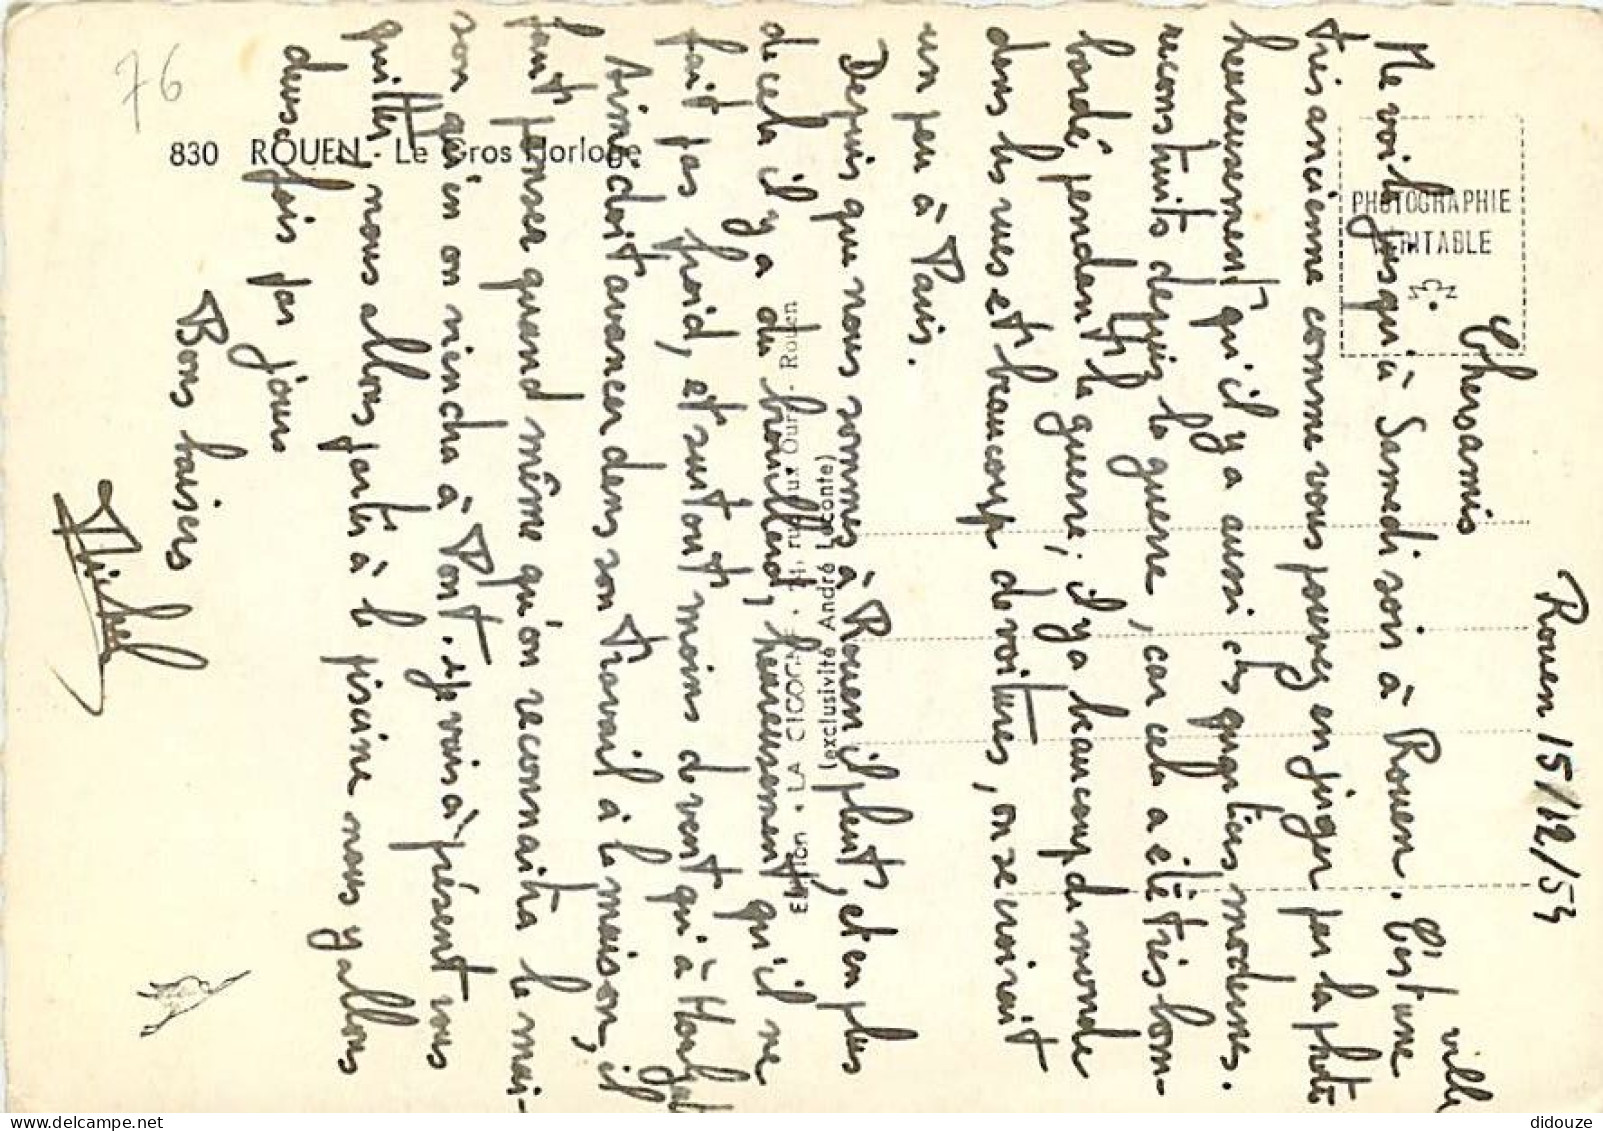 76
830 ROUEN - Le Gros Horloge
PHOTOGRAPHIE
VÉRITABLE
Edition • LA CIGOGNE • rue aux Ours - Rouen
(exclusivité André Leconte)
Rouen 15/12/53
Chers amis
Me voilà jusqu'à Samedi soir à Rouen. C'est une ville
très ancienne comme vous pouvez en juger par la photo
heureusement qu'il y a aussi des quartiers modernes.
reconstruits depuis la guerre, car cela a été très bom-
bardé pendant la guerre; il y a beaucoup de monde
dans les rues et beaucoup de voitures, on se croirait
un peu à Paris.
Depuis que nous sommes à Rouen il pleut, et en plus
de cela il y a du brouillard, heureusement qu'il ne
fait pas froid, et surtout moins de vent qu'à
Aimé doit avancer dans son travail à la maison, il
faut penser quand même qu'on reconnaitra la mai-
son qu'en on viendra à Pont. Je vais à présent vous
quitter, nous allons partir à la piscine nous y allons
deux fois par jour
Bons baisers
Michel